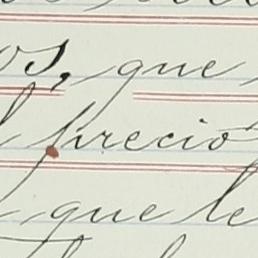 os, que
precio
que le